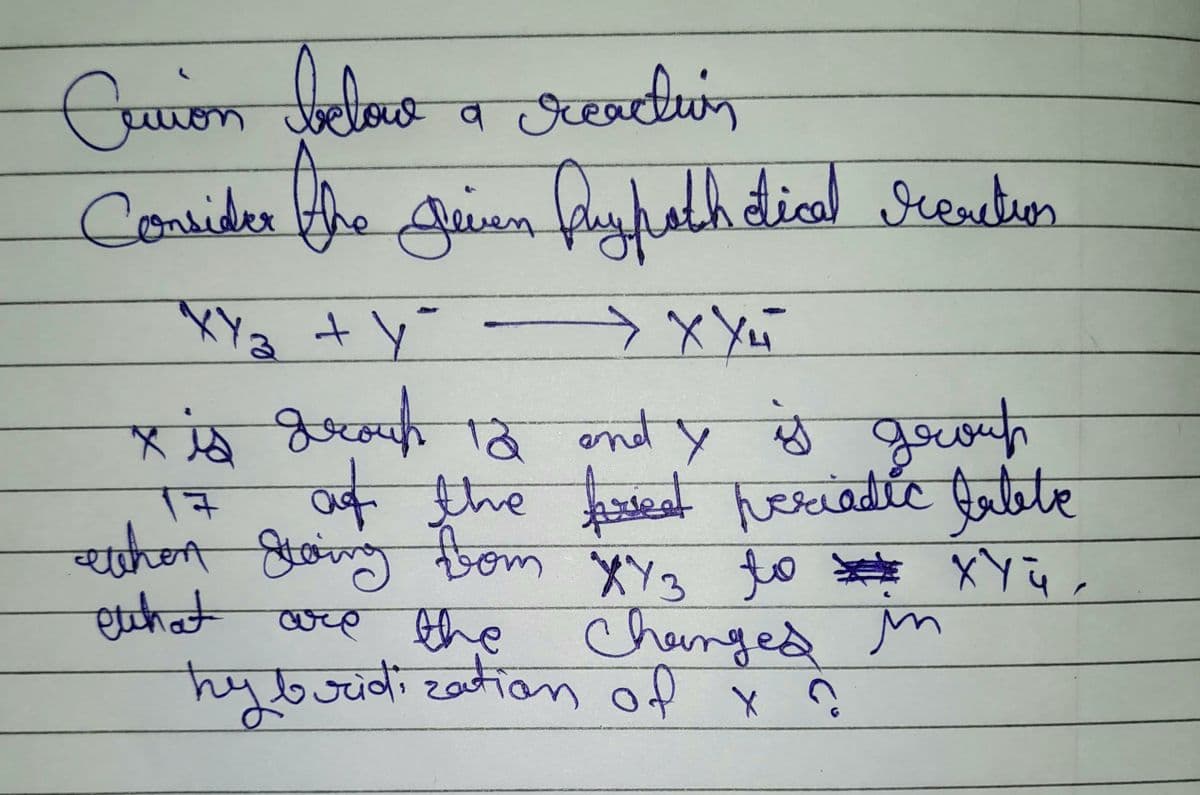 Given below a reaction
Consider the given hypothetical reaction
XY3 + Y⁻ → XY4⁻
X is group 13 and Y is group
17 of the periodic table
when going from XY3 to XY4⁻,
what are the changes in
hybridization of X ?